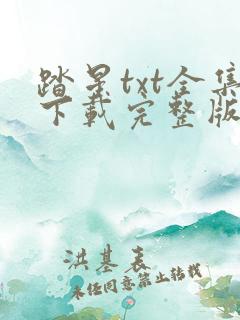 踏星txt全集
下载完整版
洪基表
未经同意禁止转载